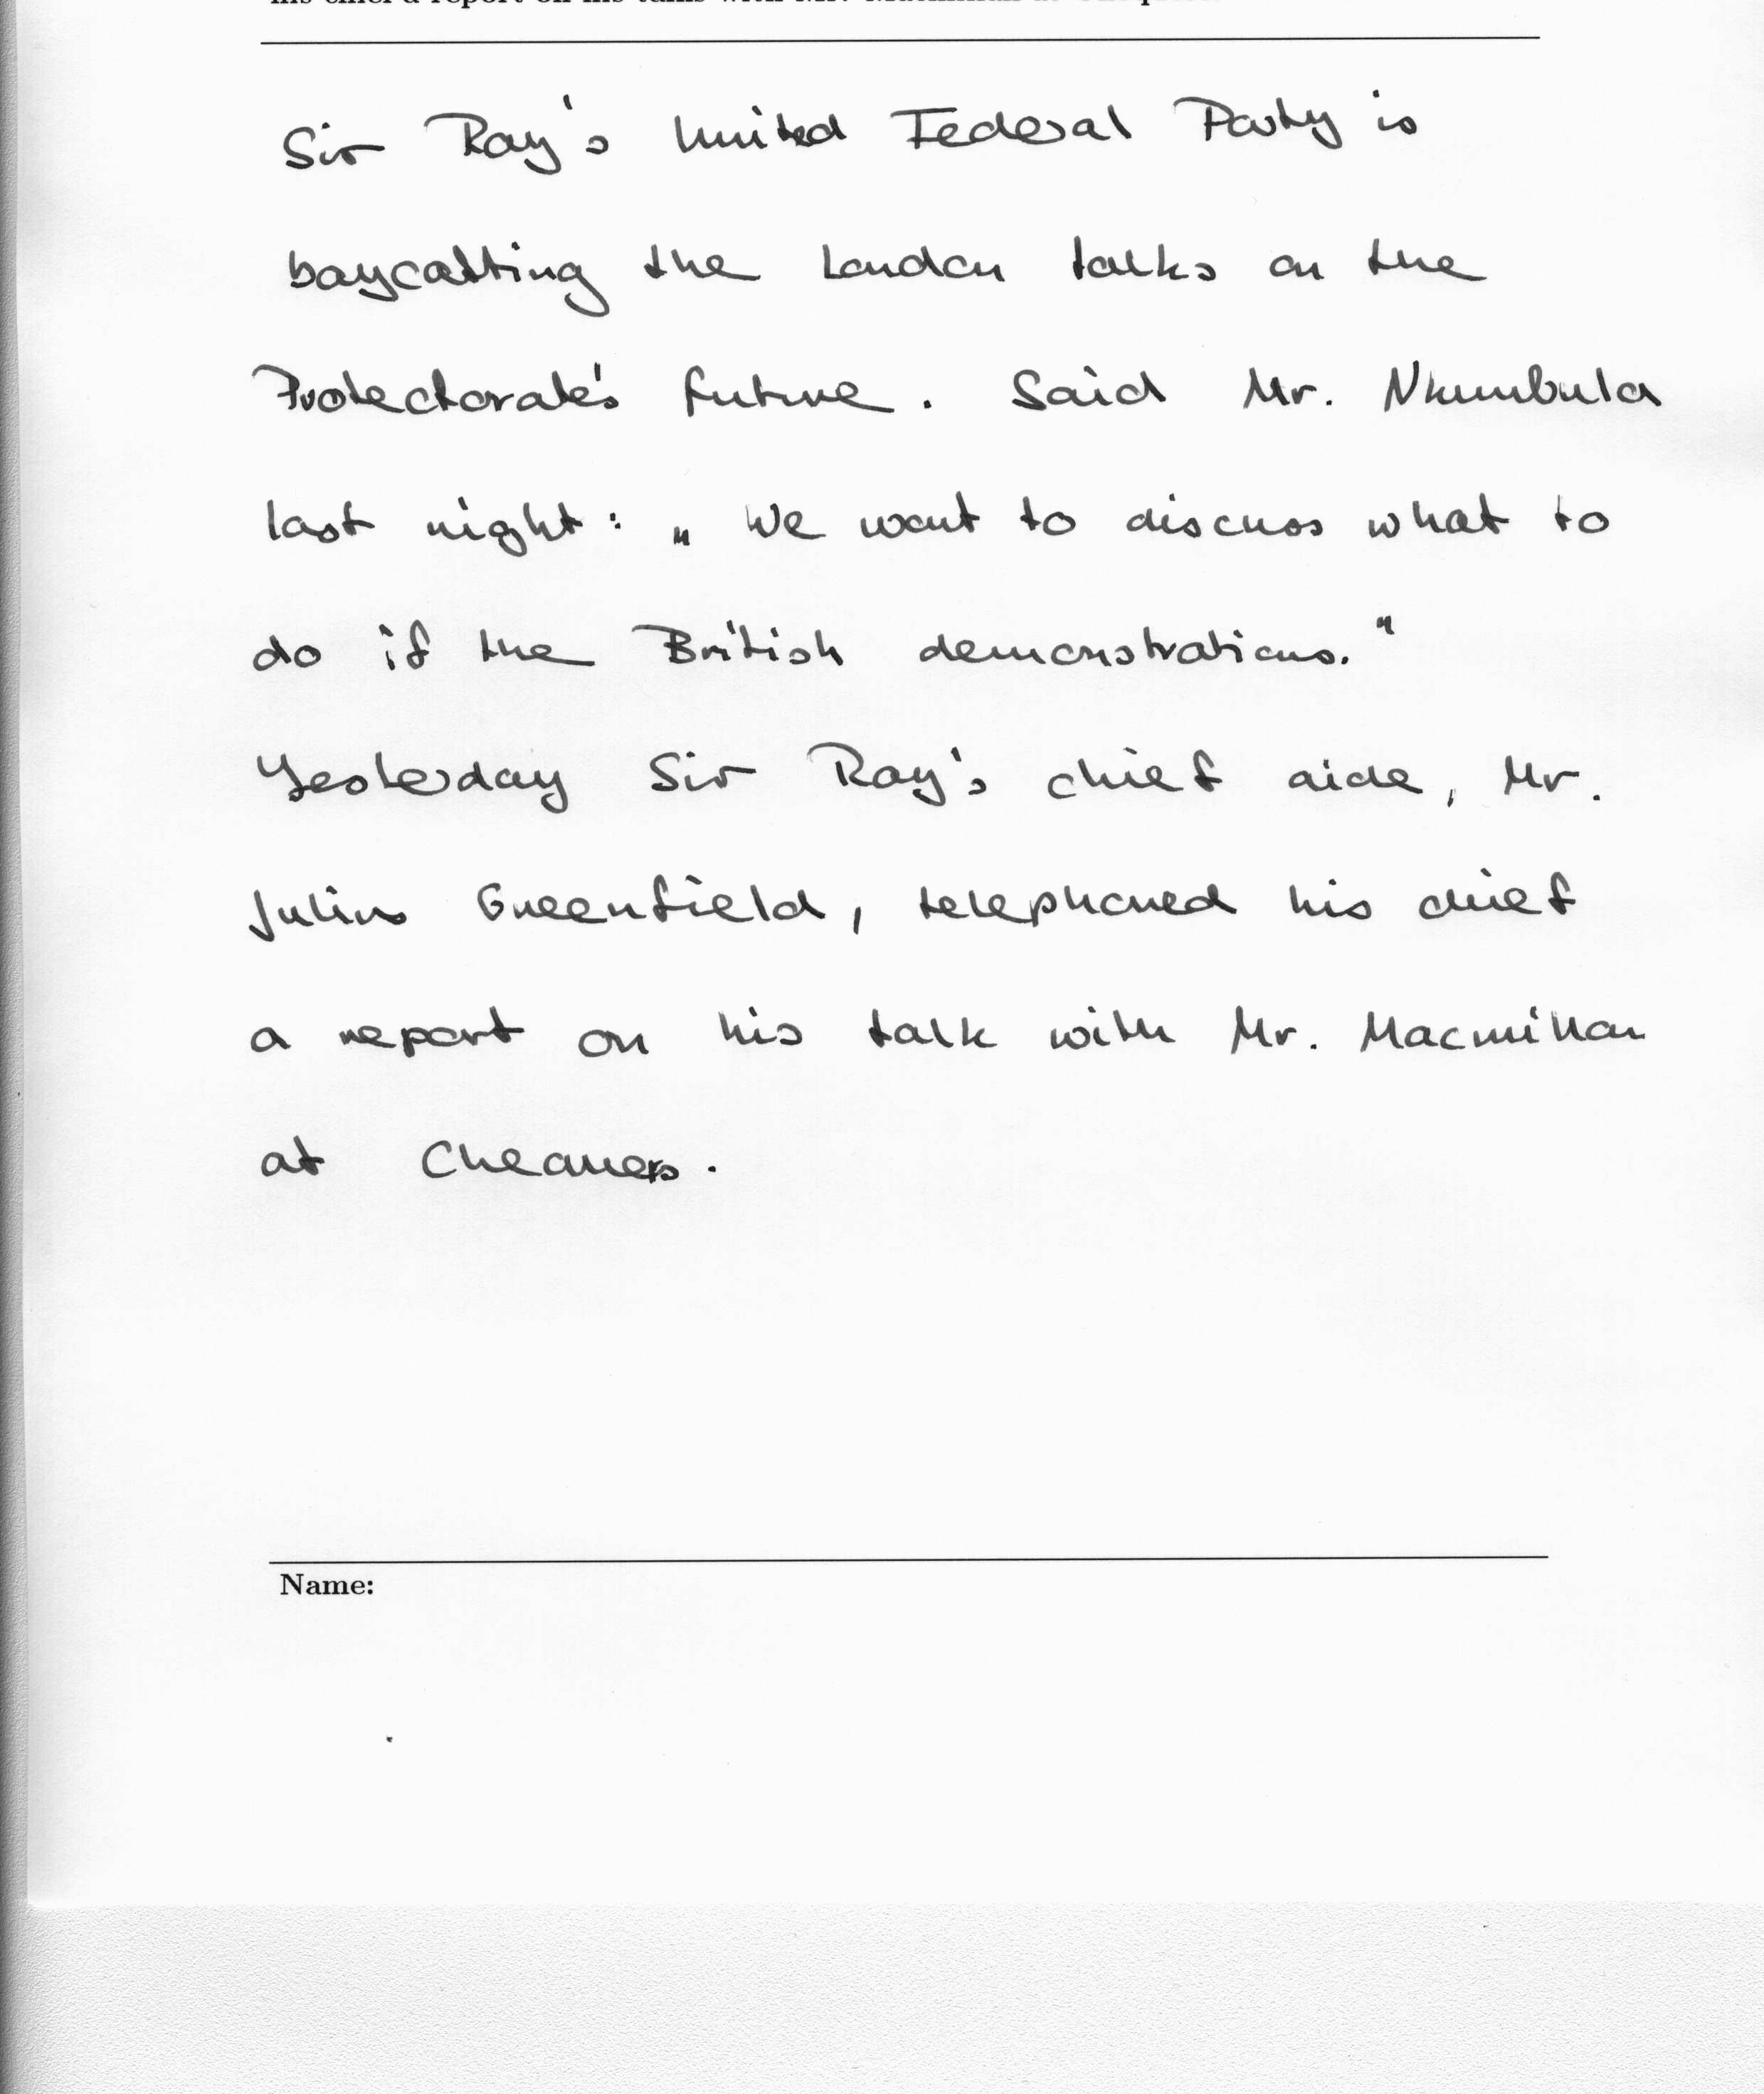 Sir Ray's United Federal Party is
boycotting the London talks on the
Protectorate's future. Said Mr. Nkumbula
last night: „We want to discuss what to
do if the British demonstrations."
Yesterday Sir Ray's chief aide, Mr.
Julius Greenfield, telephoned his chief
a report on his talk with Mr. Macmillan
at
Name: